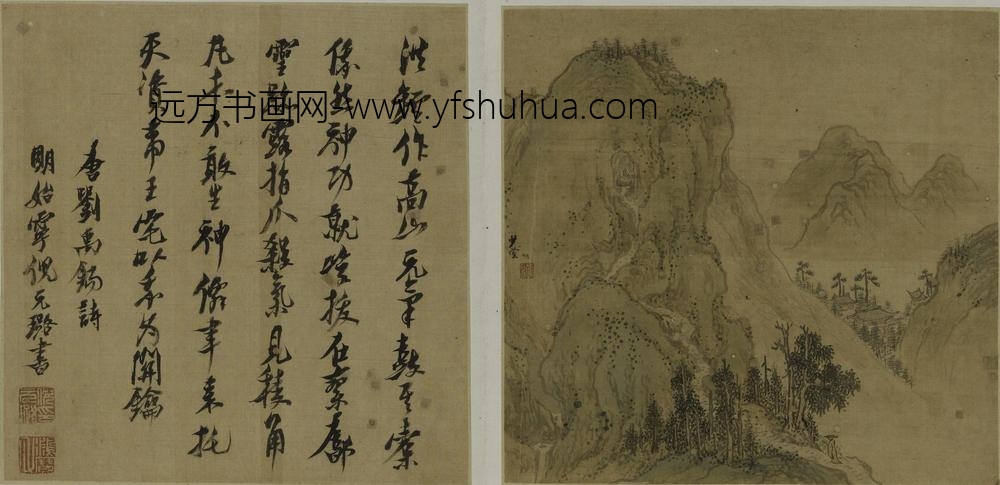 洪鑪作高山元氣鼓其橐
俄然神功就峻拔在寥廓
靈蹤露指爪殺氣見稜角
凡木不敢生神僊聿来托
天資帝王宅以我为關鑰
唐劉禹錫詩
明始寧倪元璐書
远方书画网 www.yfshuhua.com